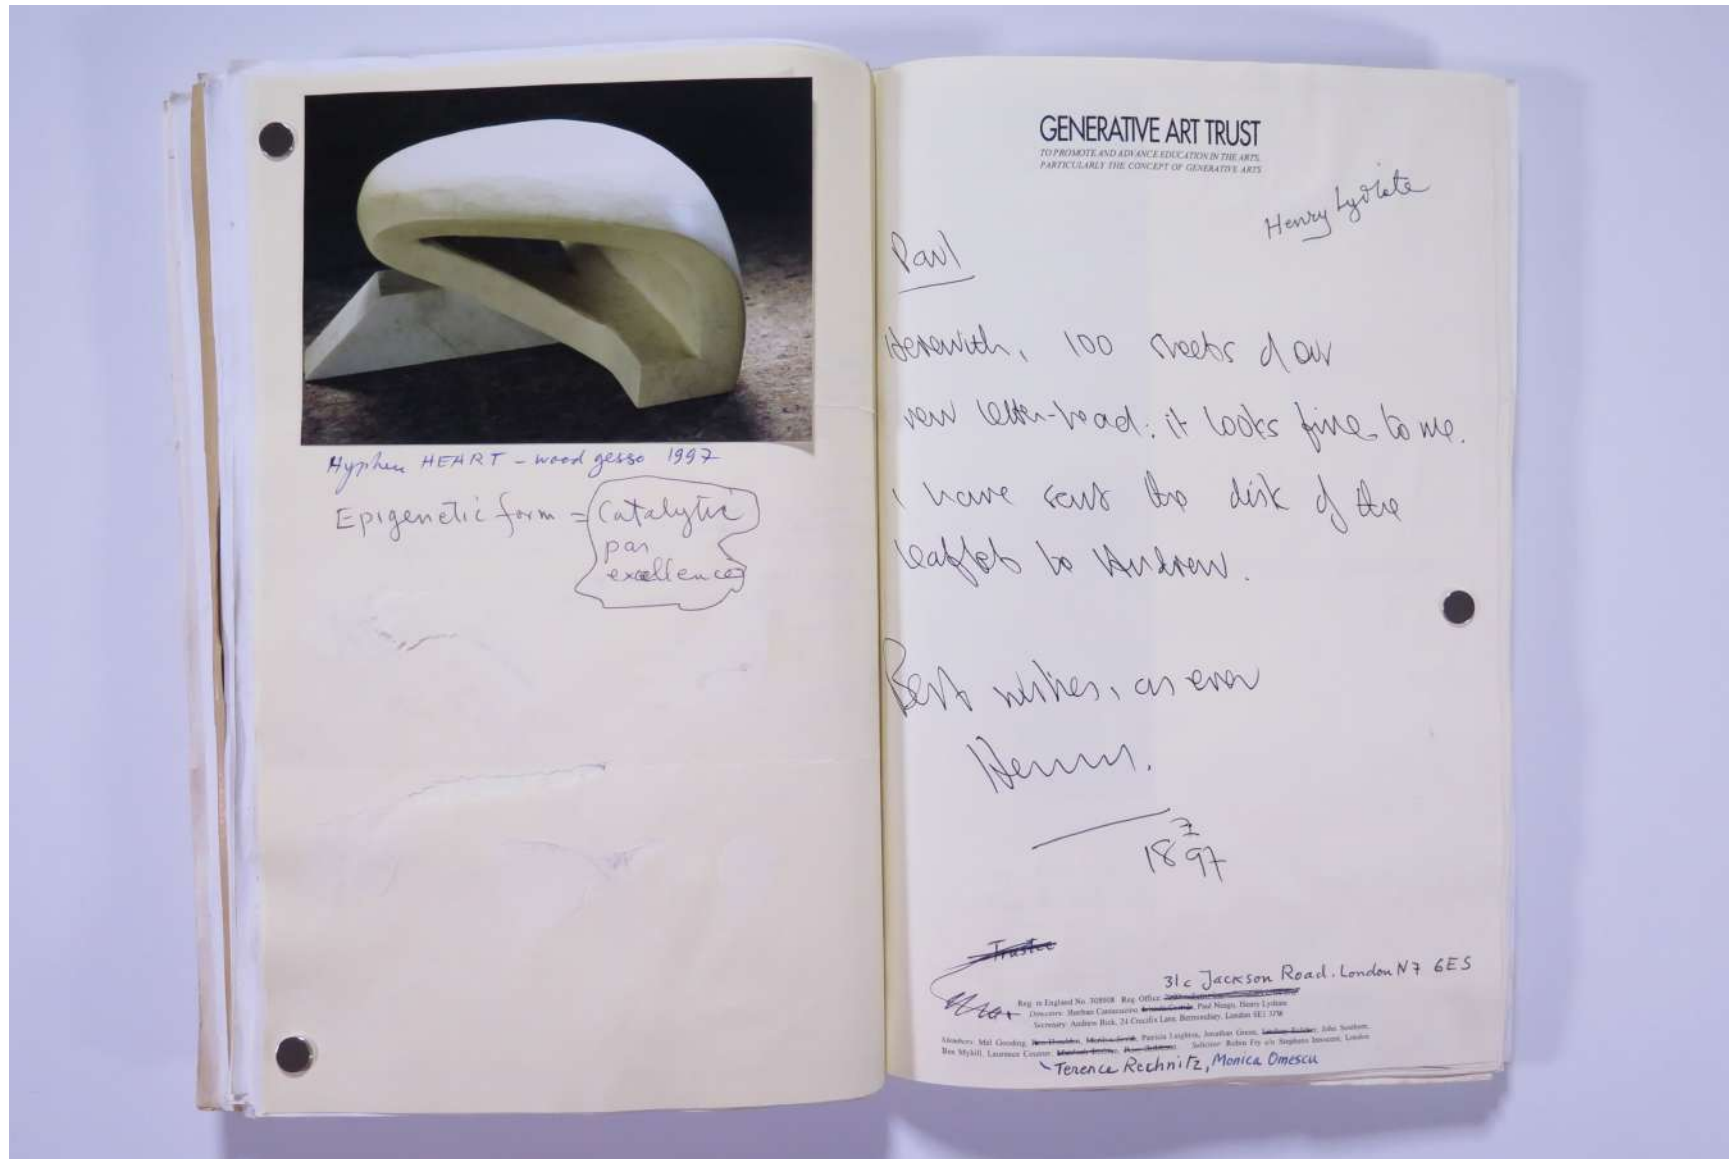 Hyphen HEART – wood gesso 1997
Epigenetic form = catalytic
par
excellence
GENERATIVE ART TRUST
TO PROMOTE AND ADVANCE EDUCATION IN THE ARTS,
PARTICULARLY THE CONCEPT OF GENERATIVE ARTS
Henry Lydiate
Paul
Herewith, 100 sheets of our
new letter-head: it looks fine to me.
I have sent the disk of the
leaflet to Andrew.
Best wishes, as ever
Henry.
18 7 97
Trustee
31c Jackson Road. London N7 6ES
Reg. in England No. Reg. Office
Directors: Paul Neagu, Henry Lydiate
Secretary: Andrew Bick, 24 Crucifix Lane, Bermondsey, London SE1 3JW
Members: Mel Gooding, Patricia Leighton, Jonathan Green, John
Ben Myhill, Laurence Solicitor: Robin Fry c/o Stephens Innocent, London
Terence Rechnitz, Monica Omescu